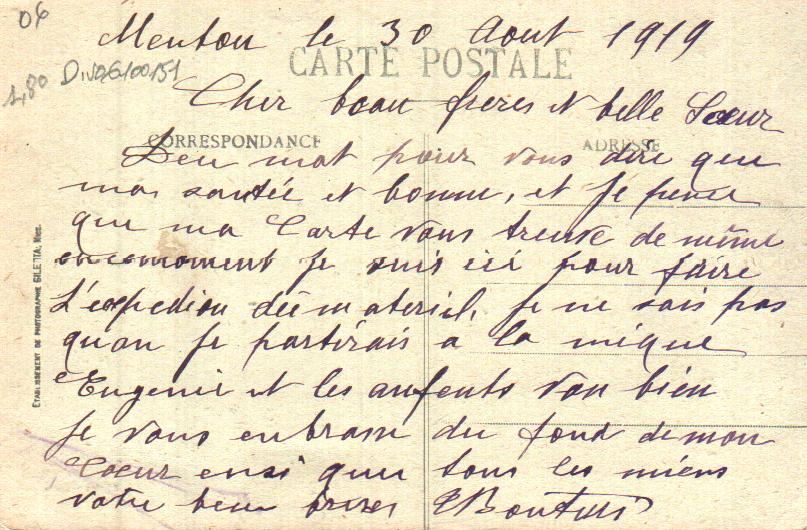 06
1,80
Menton le 30 Aout 1919
CARTE POSTALE
Cher beau freres et belle Sœur
CORRESPONDANCE
ADRESSE
Deu mot pour vous dire que
ma santée et bonne, et je pense
que ma Carte vous treuve de même
encemoment je suis ici pour faire
L'expedion du materiel, je ne sais pas
quan je partirais a la mique
Eugenie et les anfents von bien
Je vous enbrasse du fond demon
Coeur ensi que tous les miens
votre beau freres
ETABLISSEMENT DE PHOTOGRAPHIE GILETTA, NICE.